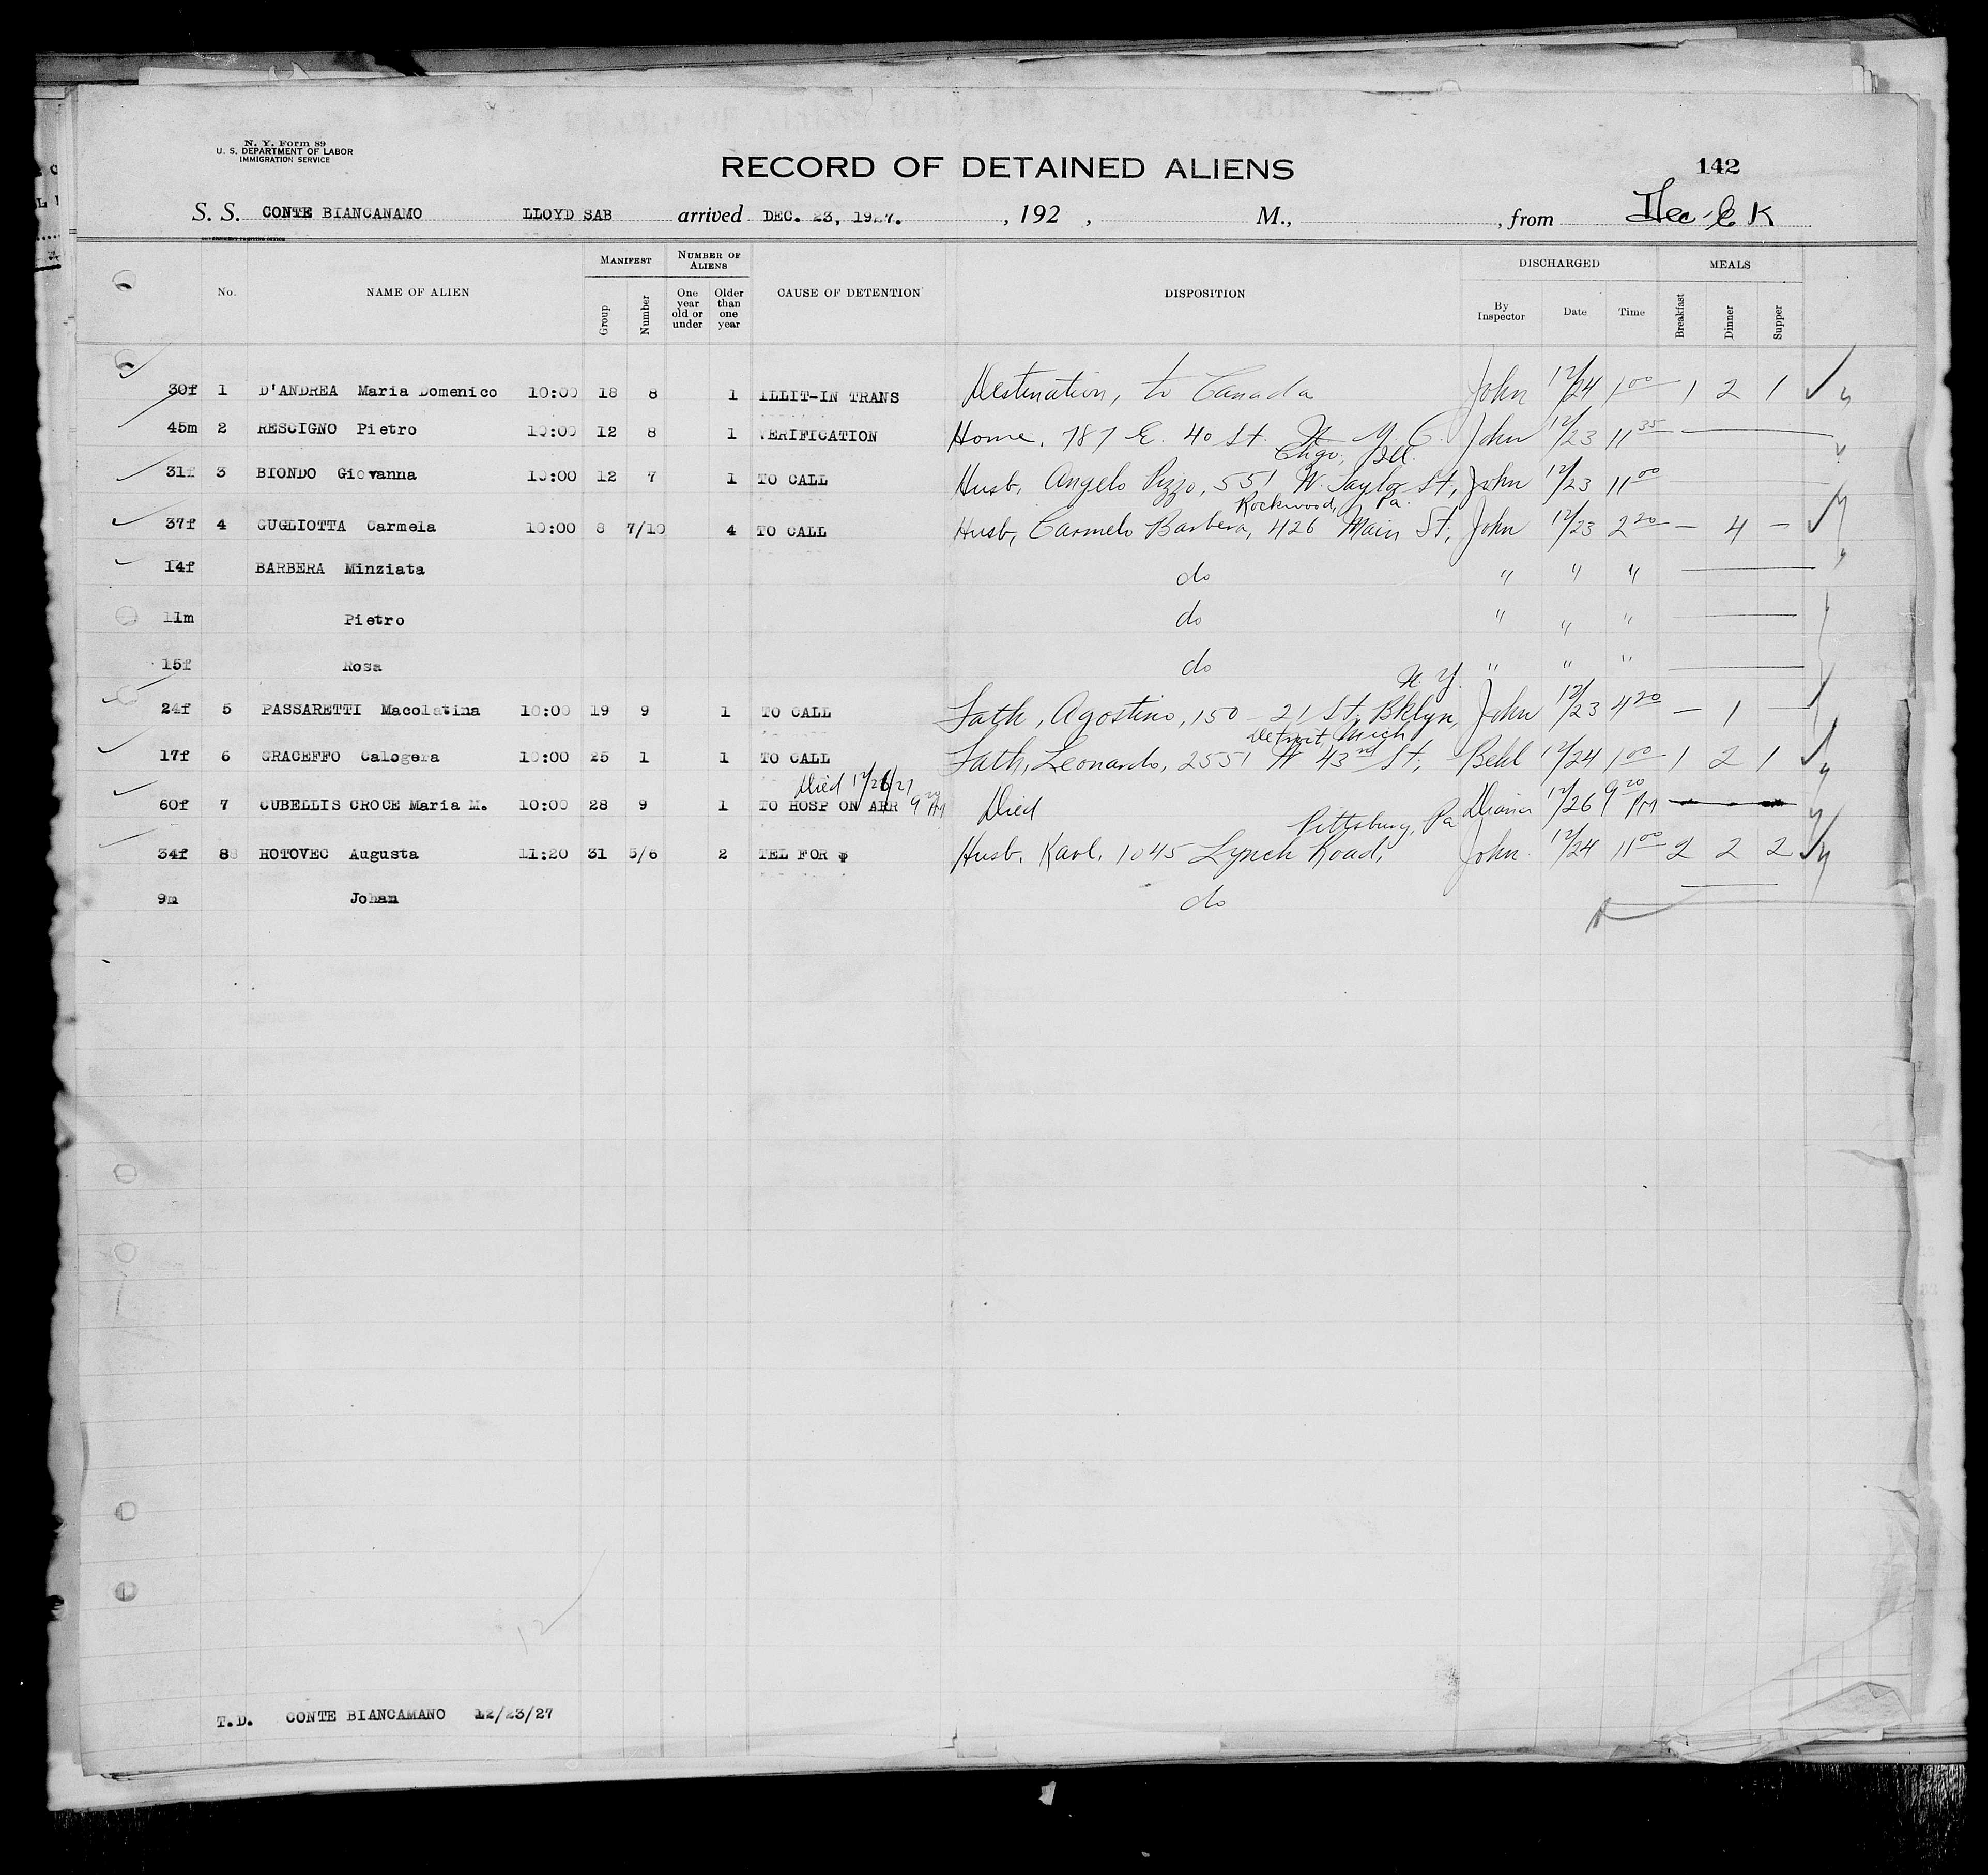 N. Y. Form 89
U. S. DEPARTMENT OF LABOR
IMMIGRATION SERVICE
RECORD OF DETAINED ALIENS
142
S. S. CONTE BIANCANAMO LLOYD SAB arrived DEC. 23, 1927. , 192 , M., , from
GOVERNMENT PRINTING OFFICE
No. NAME OF ALIEN MANIFEST Group Number NUMBER OF ALIENS One year old or under Older than one year CAUSE OF DETENTION DISPOSITION DISCHARGED By Inspector Date Time MEALS Breakfast Dinner Supper
30f 1 D'ANDREA Maria Domenico 10:00 18 8 1 ILLIT-IN TRANS Destination, to Canada John 12/24 1 00 1 2 1
45m 2 RESCIGNO Pietro 10:00 12 8 1 VERIFICATION Home, 787 E. 40 St. N. Y. C. John 12/23 11 35
Chgo, Ill.
31f 3 BIONDO Giovanna 10:00 12 7 1 TO CALL Husb, Angelo Pizzo, 551 W. Taylor St, John 12/23 11 00
Rockwood, Pa.
37f 4 GUGLIOTTA Carmela 10:00 8 7/10 4 TO CALL Husb, Carmelo Barbera, 426 Main St, John 12/23 2 20 — 4 —
14f BARBERA Minziata do " " "
11m Pietro do " " "
15f Rosa do " " "
N. Y.
24f 5 PASSARETTI Macolatina 10:00 19 9 1 TO CALL Fath, Agostino, 150 - 21 St, Bklyn, John 12/23 4 20 — 1 —
Detroit, Mich
17f 6 GRACEFFO Calogera 10:00 25 1 1 TO CALL Fath, Leonardo, 2551 W 43rd St, Behl 12/24 1 00 1 2 1
Died 12/26/27 9 20 PM
60f 7 CUBELLIS CROCE Maria M. 10:00 28 9 1 TO HOSP ON ARR Died 12/26 9 20 PM
Pittsburg, Pa
34f 8 HOTOVEC Augusta 11:20 31 5/6 2 TEL FOR $ Husb. Karl, 1045 Lynch Road, John 12/24 11 00 2 2 2
9m Johan do
12
T.D. CONTE BIANCAMANO 12/23/27